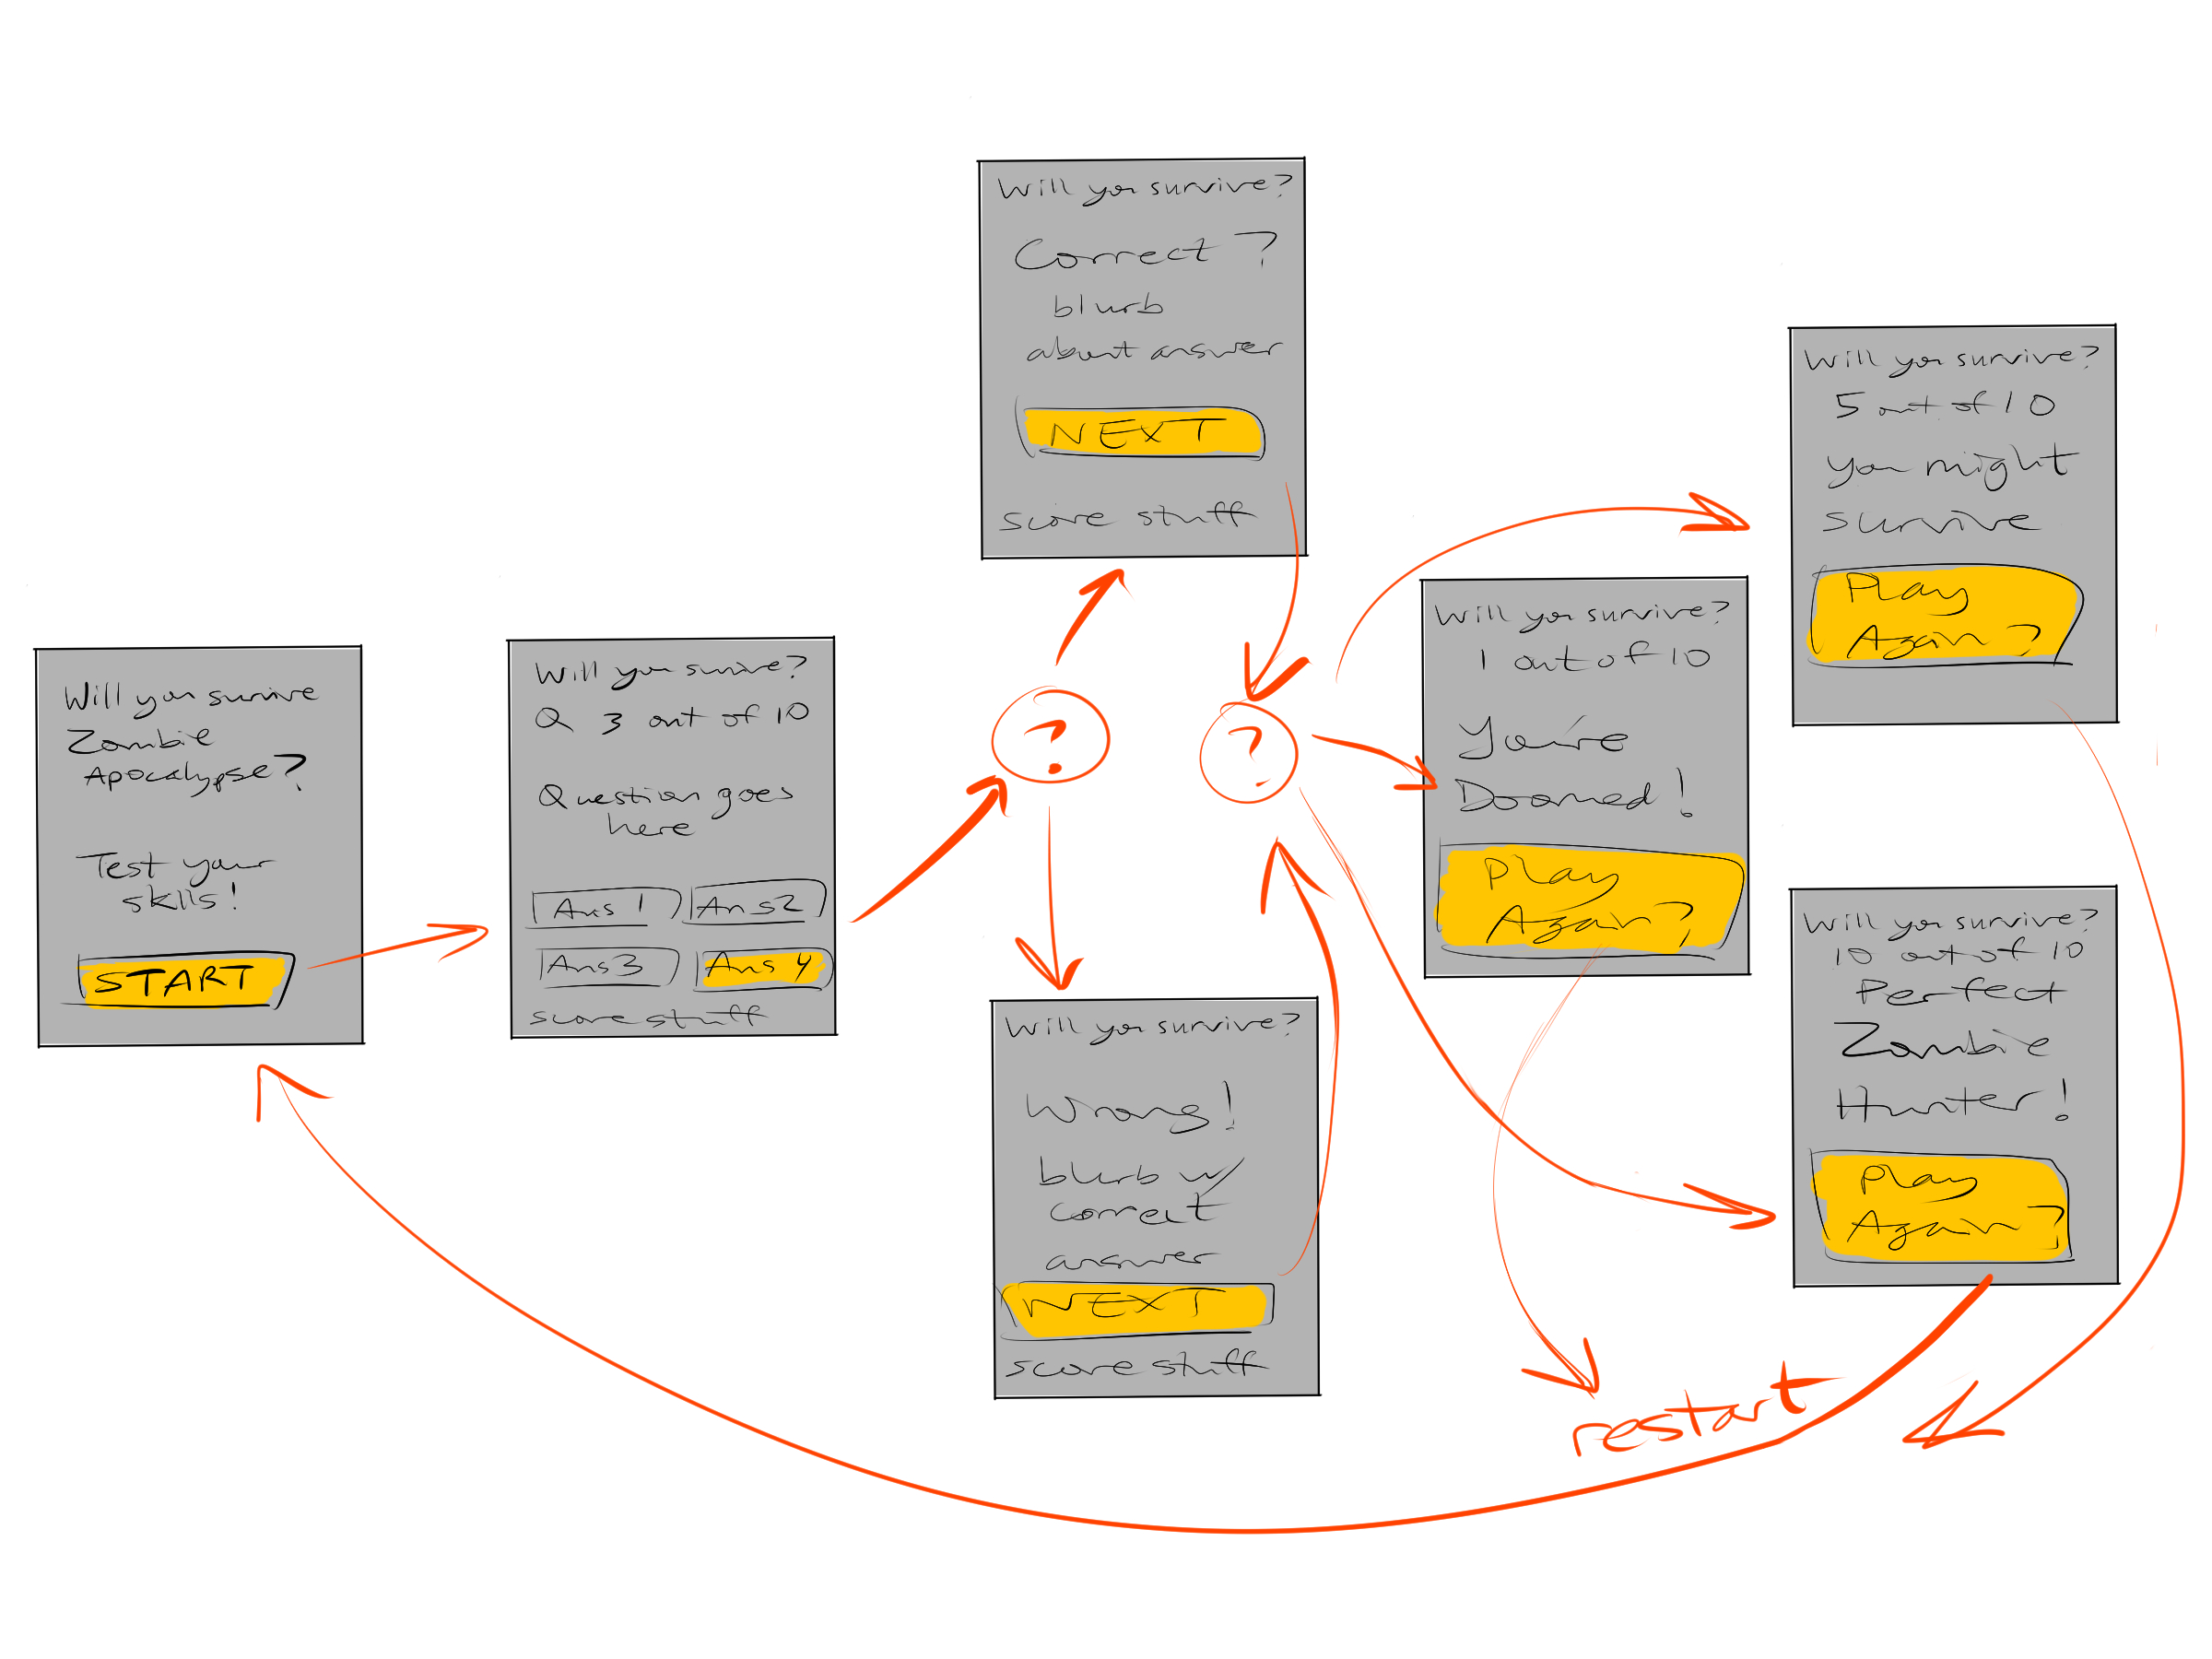 Will you survive
Zombie
Apocalypse?
Test your
sklls!
START
Will you survive?
Q 3 out of 10
Question goes
here
Ans 1
Ans2
Ans3
Ans 4
score stuff
?
Will you survive?
Correct?
blurb
about answer
NEXT
score stuff
Will you survive?
Wrong!
blurb w/
correct
answer
NEXT
score stuff
?
Will you survive?
1 out of 10
You're
Doomed!
Play
Again?
Will you survive?
5 out of 10
you might
survive
Play
Again?
Will you survive?
10 out of 10
Perfect
Zombie
Hunter!
Play
Again?
restart